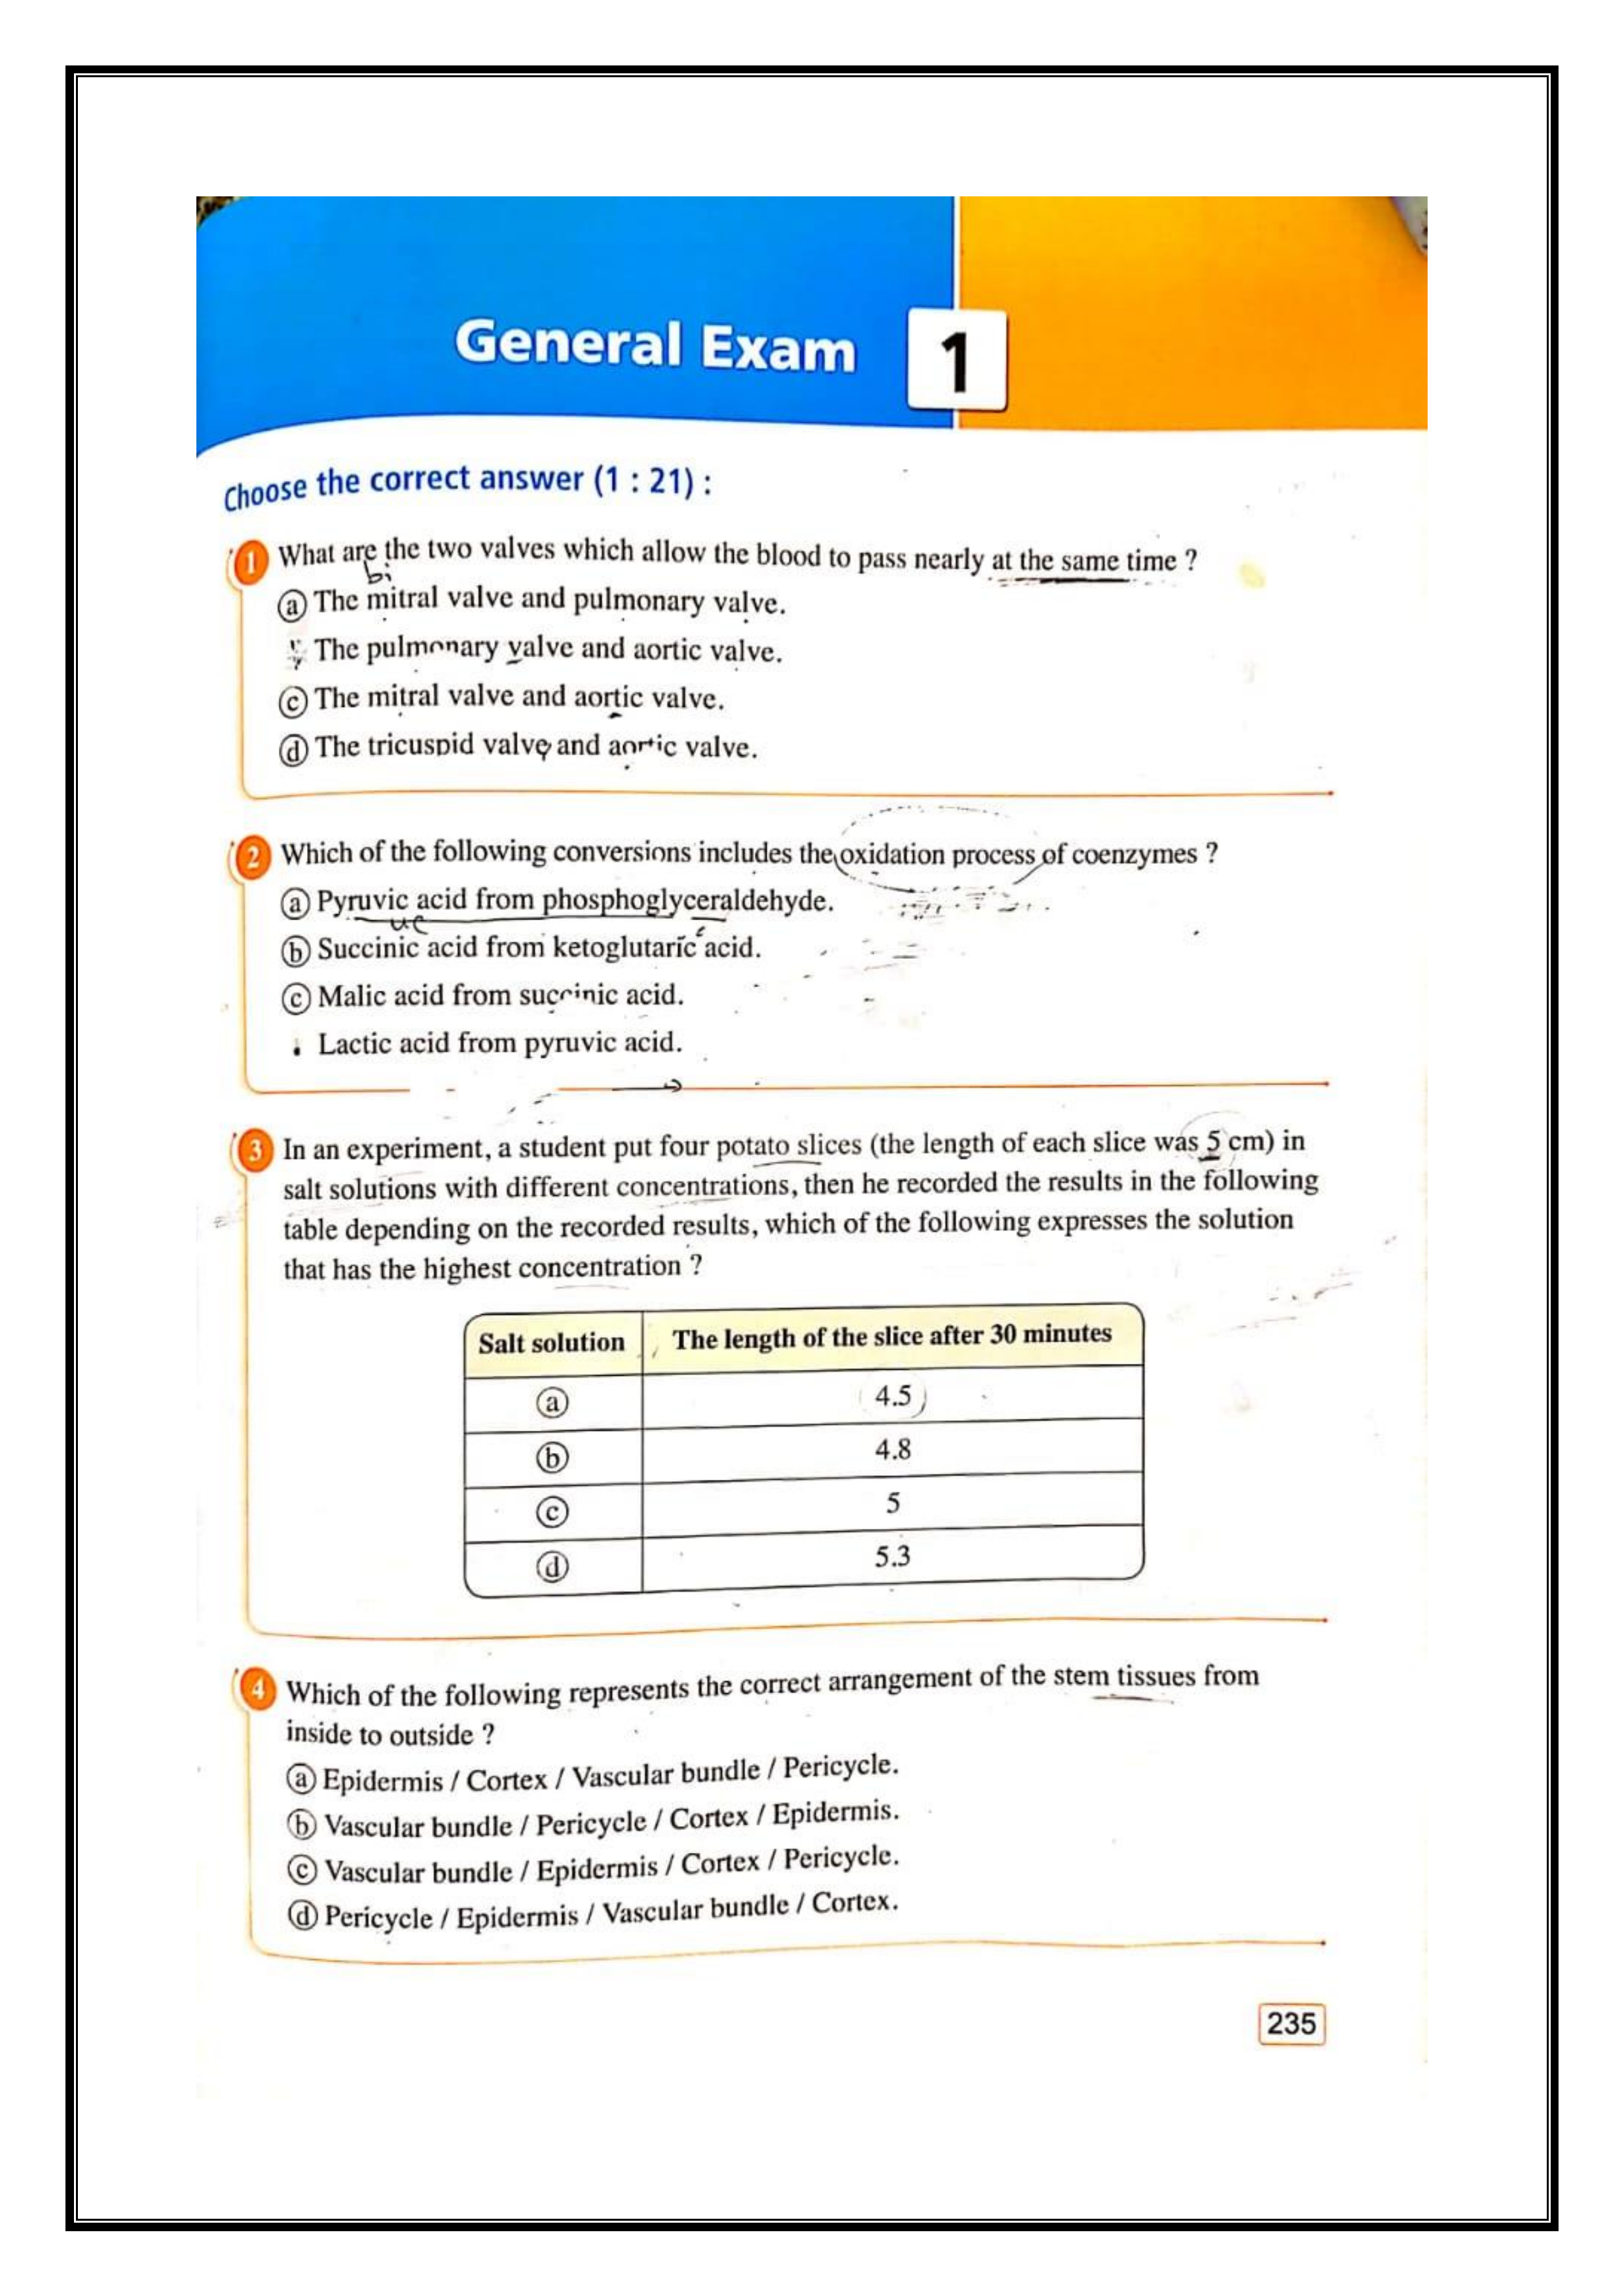 General Exam 1
Choose the correct answer (1 : 21) :
1 What are the two valves which allow the blood to pass nearly at the same time ?
bi
a The mitral valve and pulmonary valve.
The pulmonary valve and aortic valve.
c The mitral valve and aortic valve.
d The tricuspid valve and aortic valve.
2 Which of the following conversions includes the oxidation process of coenzymes ?
a Pyruvic acid from phosphoglyceraldehyde.
b Succinic acid from ketoglutaric acid.
c Malic acid from succinic acid.
Lactic acid from pyruvic acid.
3 In an experiment, a student put four potato slices (the length of each slice was 5 cm) in
salt solutions with different concentrations, then he recorded the results in the following
table depending on the recorded results, which of the following expresses the solution
that has the highest concentration ?
Salt solution The length of the slice after 30 minutes
a 4.5
b 4.8
c 5
d 5.3
4 Which of the following represents the correct arrangement of the stem tissues from
inside to outside ?
a Epidermis / Cortex / Vascular bundle / Pericycle.
b Vascular bundle / Pericycle / Cortex / Epidermis.
c Vascular bundle / Epidermis / Cortex / Pericycle.
d Pericycle / Epidermis / Vascular bundle / Cortex.
235